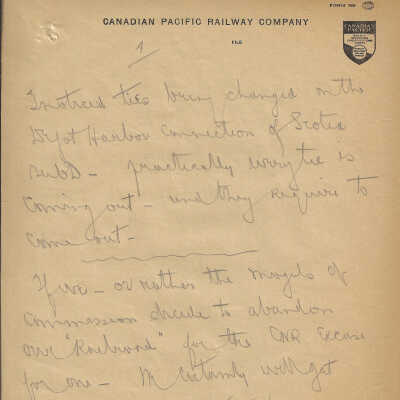 CANADIAN PACIFIC RAILWAY COMPANY
FILE
1
I noticed ties being changed on the
Depot Harbor Connection of Scotia
SubD - practically every tie is
coming out - and they require to
come out -
If we - or rather the Moguls of
Commission decide to abandon
our "Railroad" for the CNR Excuse
for one - certainly will get